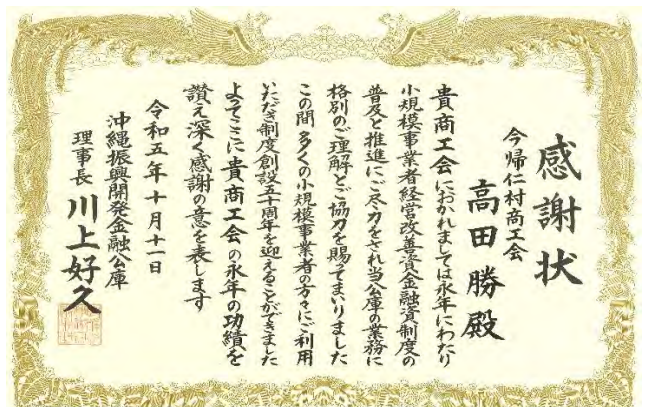 感謝状
今帰仁村商工会
高田勝殿
貴商工会におかれましては永年にわたり
小規模事業者経営改善資金融資制度の
普及と推進にご尽力をされ当公庫の業務に
格別のご理解とご協力を賜てまいりました
この間多くの小規模事業者の方々にご利用
いただき制度創設五十周年を迎えることができました
よってここに貴商工会の永年の功績を
讃え深く感謝の意を表します
令和五年十月十一日
沖縄振興開発金融公庫
理事長 川上好久